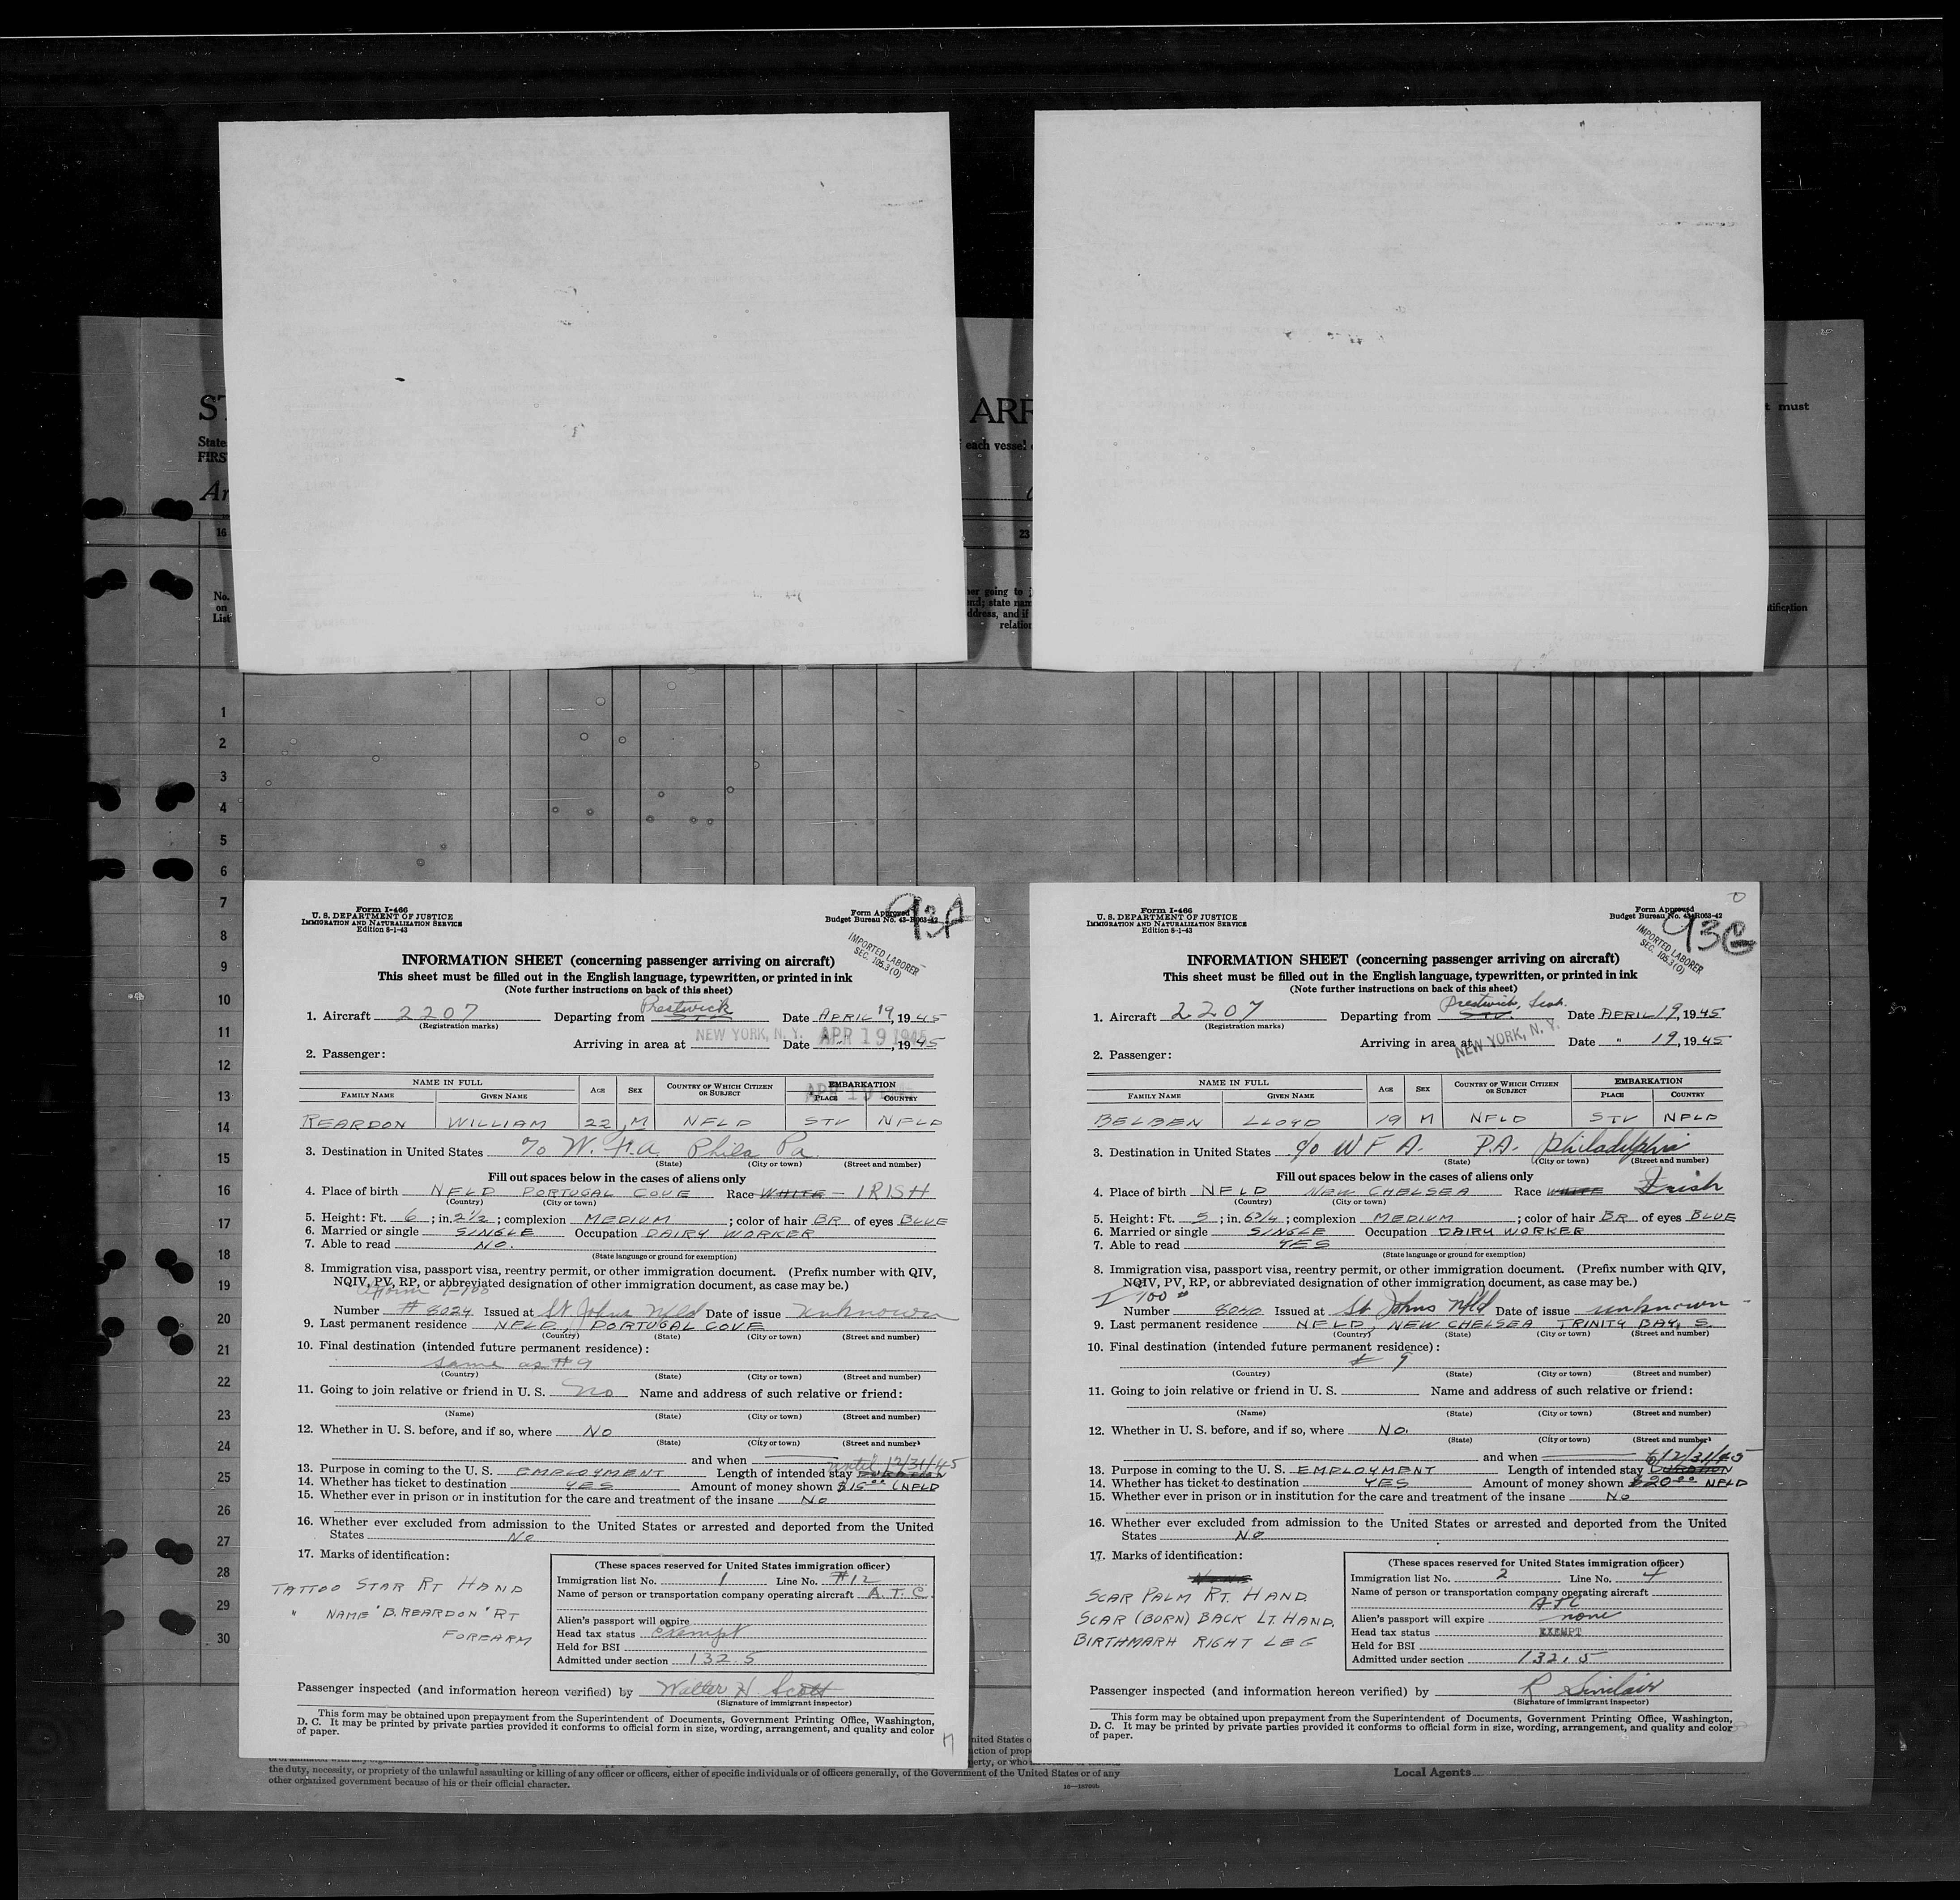 ST
ARR
t must
State
each vessel
FIRS
Ar
16
23
her going to
No.
on
List
relation
1
2
3
4
5
6
7
8
9
10
11
12
13
14
15
16
17
18
19
20
21
22
23
24
25
26
27
28
29
30
Form I-466
U. S. DEPARTMENT OF JUSTICE
IMMIGRATION AND NATURALIZATION SERVICE
Edition 8-1-43
Form Approved
Budget Bureau No. 43-R063-42
93A
IMPORTED LABORER
SEC. 105.3(0)
INFORMATION SHEET (concerning passenger arriving on aircraft)
This sheet must be filled out in the English language, typewritten, or printed in ink
(Note further instructions on back of this sheet)
1. Aircraft 2207 Departing from Prestwick STV Date APRIL 19, 1945
(Registration marks)
Arriving in area at NEW YORK, N. Y. Date APR 19 1945, 1945
2. Passenger:
NAME IN FULL AGE SEX COUNTRY OF WHICH CITIZEN OR SUBJECT EMBARKATION
FAMILY NAME GIVEN NAME PLACE COUNTRY
REARDON WILLIAM 22 M NFLD STV NFLD
3. Destination in United States c/o W.F.A. Phila Pa.
(State) (City or town) (Street and number)
Fill out spaces below in the cases of aliens only
4. Place of birth NFLD PORTUGAL COVE Race WHITE - IRISH
(Country) (City or town)
5. Height: Ft. 6; in. 2 1/2; complexion MEDIUM; color of hair BR of eyes BLUE
6. Married or single SINGLE Occupation DAIRY WORKER
7. Able to read NO.
(State language or ground for exemption)
8. Immigration visa, passport visa, reentry permit, or other immigration document. (Prefix number with QIV,
NQIV, PV, RP, or abbreviated designation of other immigration document, as case may be.)
Form I-100
Number # 8024 Issued at St. Johns Nfld Date of issue unknown
9. Last permanent residence NFLD, PORTUGAL COVE
(Country) (State) (City or town) (Street and number)
10. Final destination (intended future permanent residence):
same as #9
(Country) (State) (City or town) (Street and number)
11. Going to join relative or friend in U. S. No Name and address of such relative or friend:
(Name) (State) (City or town) (Street and number)
12. Whether in U. S. before, and if so, where No
(State) (City or town) (Street and number)
and when
until 12/31/45
13. Purpose in coming to the U. S. EMPLOYMENT Length of intended stay DURATION
14. Whether has ticket to destination YES Amount of money shown $15.00 (NFLD
15. Whether ever in prison or in institution for the care and treatment of the insane No
16. Whether ever excluded from admission to the United States or arrested and deported from the United
States No
17. Marks of identification:
TATTOO STAR RT HAND
" NAME "B.REARDON" RT
FOREARM
(These spaces reserved for United States immigration officer)
Immigration list No. 1 Line No. #12
Name of person or transportation company operating aircraft A.T.C.
Alien's passport will expire
Head tax status exempt
Held for BSI
Admitted under section 132.5
Passenger inspected (and information hereon verified) by Walter H. Scott
(Signature of immigrant inspector)
This form may be obtained upon prepayment from the Superintendent of Documents, Government Printing Office, Washington,
D. C. It may be printed by private parties provided it conforms to official form in size, wording, arrangement, and quality and color
of paper.
Form I-466
U. S. DEPARTMENT OF JUSTICE
IMMIGRATION AND NATURALIZATION SERVICE
Edition 8-1-43
Form Approved
Budget Bureau No. 43-R063-42
93C
IMPORTED LABORER
SEC. 105.3(0)
INFORMATION SHEET (concerning passenger arriving on aircraft)
This sheet must be filled out in the English language, typewritten, or printed in ink
(Note further instructions on back of this sheet)
1. Aircraft 2207 Departing from Prestwick, Scot. STV. Date APRIL 19, 1945
(Registration marks)
Arriving in area at NEW YORK, N. Y. Date " 19, 1945
2. Passenger:
NAME IN FULL AGE SEX COUNTRY OF WHICH CITIZEN OR SUBJECT EMBARKATION
FAMILY NAME GIVEN NAME PLACE COUNTRY
BELBEN LLOYD 19 M NFLD STV NFLD
3. Destination in United States c/o W F A. P.A. Philadelphia
(State) (City or town) (Street and number)
Fill out spaces below in the cases of aliens only
4. Place of birth NFLD NEW CHELSEA Race WHITE Irish
(Country) (City or town)
5. Height: Ft. 5; in. 6 3/4; complexion MEDIUM; color of hair BR of eyes BLUE
6. Married or single SINGLE Occupation DAIRY WORKER
7. Able to read YES
(State language or ground for exemption)
8. Immigration visa, passport visa, reentry permit, or other immigration document. (Prefix number with QIV,
NQIV, PV, RP, or abbreviated designation of other immigration document, as case may be.)
I 100 #
Number 8040 Issued at St Johns Nfld Date of issue unknown
9. Last permanent residence NFLD, NEW CHELSEA TRINITY BAY, S.
(Country) (State) (City or town) (Street and number)
10. Final destination (intended future permanent residence):
# 9
(Country) (State) (City or town) (Street and number)
11. Going to join relative or friend in U. S. Name and address of such relative or friend:
(Name) (State) (City or town) (Street and number)
12. Whether in U. S. before, and if so, where NO.
(State) (City or town) (Street and number)
and when
to 12/31/45
13. Purpose in coming to the U. S. EMPLOYMENT Length of intended stay DURATION
14. Whether has ticket to destination YES Amount of money shown $20.00 NFLD
15. Whether ever in prison or in institution for the care and treatment of the insane No
16. Whether ever excluded from admission to the United States or arrested and deported from the United
States NO
17. Marks of identification:
NONE
SCAR PALM RT. HAND
SCAR (BURN) BACK LT. HAND.
BIRTHMARH RIGHT LEG
(These spaces reserved for United States immigration officer)
Immigration list No. 2 Line No. 4
Name of person or transportation company operating aircraft
ATC
Alien's passport will expire none
Head tax status EXEMPT
Held for BSI
Admitted under section 132.5
Passenger inspected (and information hereon verified) by R Sinclair
(Signature of immigrant inspector)
This form may be obtained upon prepayment from the Superintendent of Documents, Government Printing Office, Washington,
D. C. It may be printed by private parties provided it conforms to official form in size, wording, arrangement, and quality and color
of paper.
the duty, necessity, or propriety of the unlawful assaulting or killing of any officer or officers, either of specific individuals or of officers generally, of the Government of the United States or of any
other organized government because of his or their official character.
Local Agents